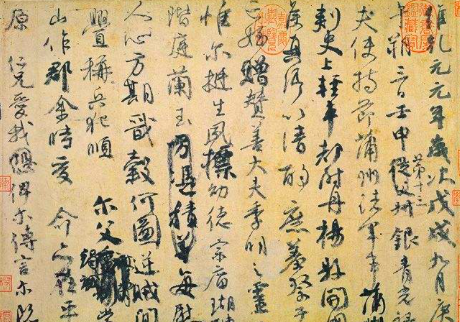 維乾元元年歲次戊戌九月庚
午朔三日壬申第十三從父銀青光祿
夫使持節蒲州諸軍事蒲州
刺史上輕車都尉丹楊縣開國
侯真卿以清酌庶羞祭于
亡姪贈贊善大夫季明之靈
惟爾挺生夙標幼德宗廟瑚
階庭蘭玉方憑積善每慰
人心方期戩穀何圖逆賊閒
釁稱兵犯順爾父常
山作郡余時受命亦在平
原仁兄愛我俾爾傳言爾既